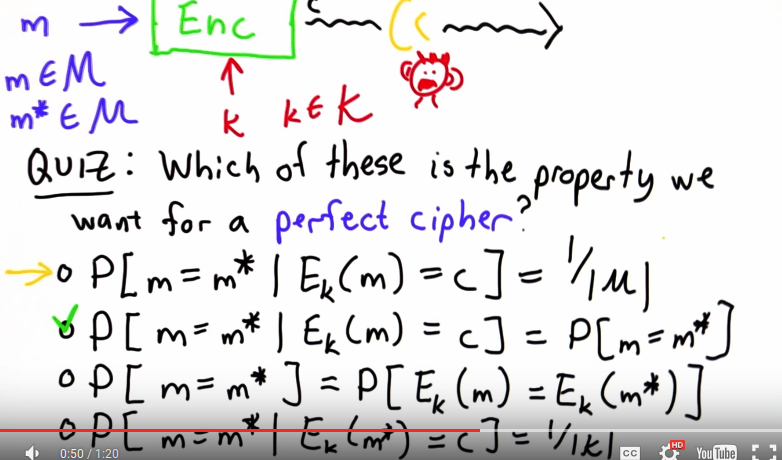 m → Enc c
m ∈ M
m* ∈ M
k k ∈ K
QUIZ: Which of these is the property we
want for a perfect cipher?
→ o P[m = m* | E_k(m) = c] = 1/|M|
✓ o P[m = m* | E_k(m) = c] = P[m = m*]
o P[m = m*] = P[E_k(m) = E_k(m*)]
o P[m = m* | E_k(m*) = c] = 1/|K|
0:50 / 1:20 CC HD YouTube